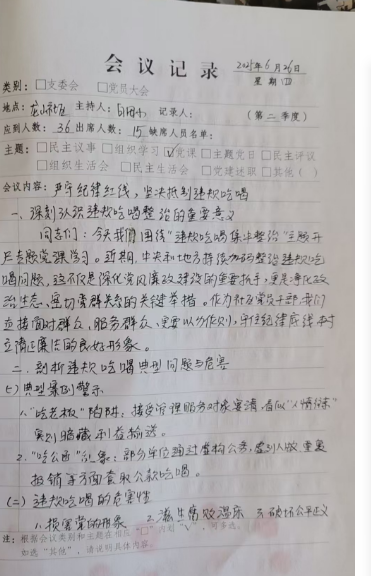 会议记录 2025年6月26日
星期四
类别：□支委会 □党员大会
地点： 主持人： 记录人： （第二季度）
应到人数：36 出席人数：15 缺席人员名单：
主题：□民主议事 □组织学习 ☑党课 □主题党日 □民主评议
□组织生活会 □民主生活会 □党建述职 □其他（ ）
会议内容：严守纪律红线，坚决抵制违规吃喝
一、深刻认识违规吃喝整治的重要意义
同志们：今天我们围绕“违规吃喝集中整治”主题开
展专题党课学习。近期，中央和地方持续加码整治违规吃
喝问题，这不仅是深化党风廉政建设的重要抓手，更是净化政
治生态、密切党群关系的关键举措。作为社区党员干部，我们
直接面对群众、服务群众，更要以身作则，牢住纪律底线，树
立清正廉洁的良好形象。
二、剖析违规吃喝典型问题与危害
（一）典型案例警示
1、“吃老板”陷阱：接受管理服务对象宴请，看似“人情往来”
实则暗藏利益输送。
2、“吃公函”乱象：部分单位通过虚构公务、 重复
报销等方面套取公款吃喝。
（二）违规吃喝的危害性
1、损害党的形象 2、滋生腐败温床 3、破坏公平正义
注：根据会议类别和主题在相应“□”内划“√”，可多选。
如选“其他”，请说明具体内容。